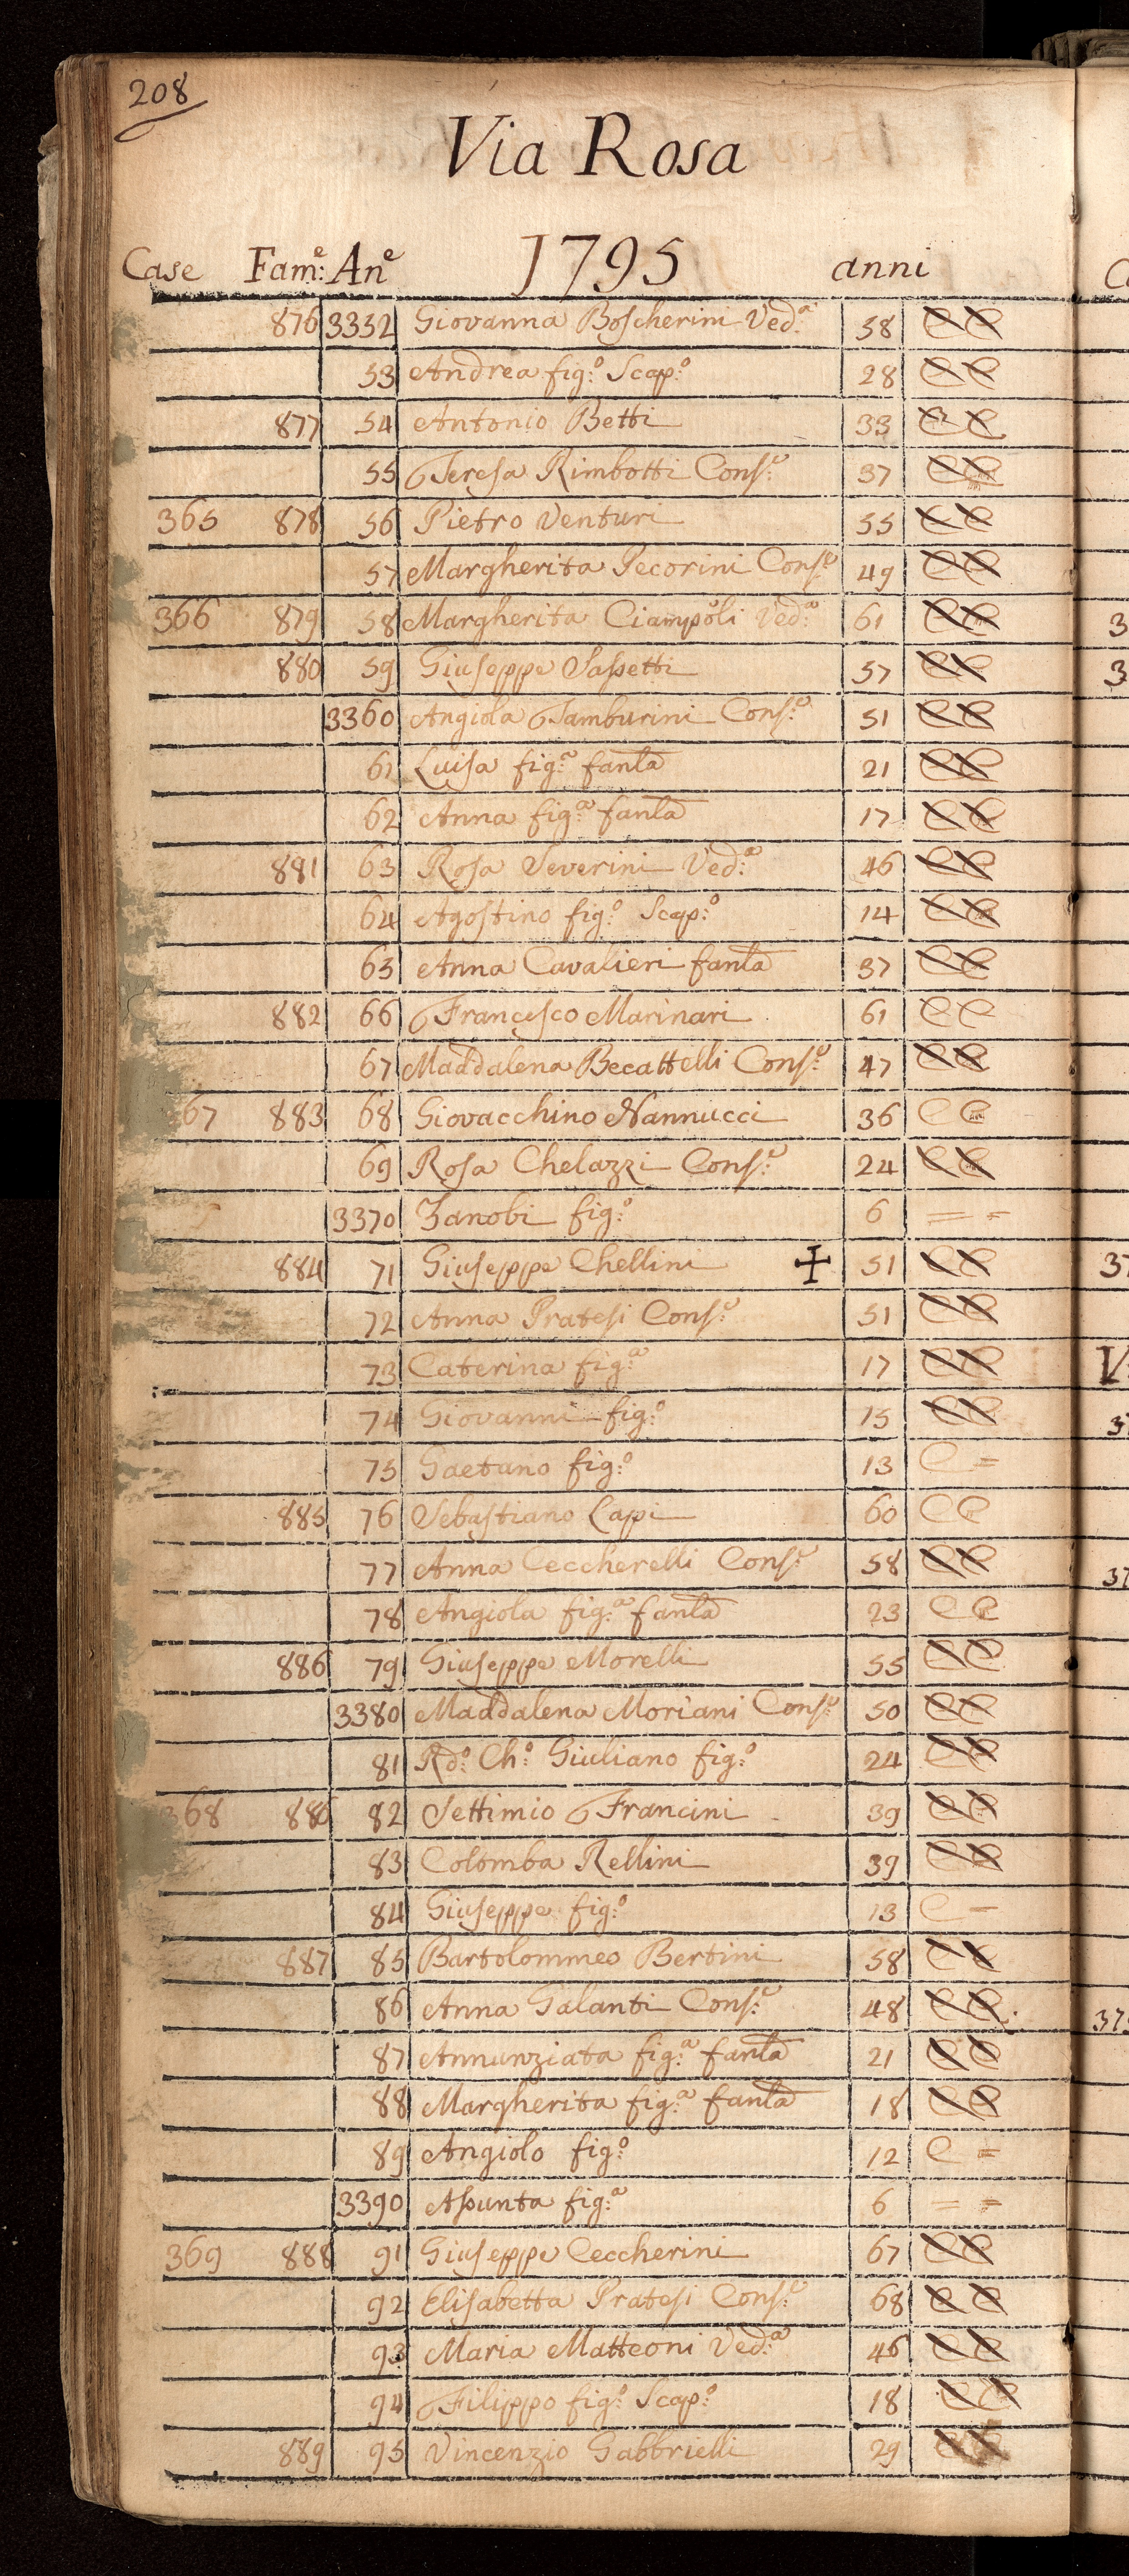 208
Via Rosa
1795
Case Fam:e An:e anni
876 3352 Giovanna Boscherini Ved:a 58 C C
53 Andrea fig:o Scap:o 28 C C
877 54 Antonio Betti 33 C C
55 Teresa Rimbotti Cons:e 37 C C
365 878 56 Pietro Venturi 55 C C
57 Margherita Pecorini Cons:e 49 C C
366 879 58 Margherita Ciampoli Ved:a 61 C C
880 59 Giuseppe Sassetti 57 C C
3360 Angiola Tamburini Cons:e 51 C C
61 Luisa fig:a fanla 21 C C
62 Anna fig:a fanla 17 C C
881 63 Rosa Severini Ved:a 46 C C
64 Agostino fig:o Scap:o 14 C C
65 Anna Cavalieri fanla 37 C C
882 66 Francesco Marinari 61 C C
67 Maddalena Becattelli Cons:e 47 C C
67 883 68 Giovacchino Nannucci 36 C C
69 Rosa Chelazzi Cons:e 24 C C
3370 Zanobi fig:o 6 = =
884 71 Giuseppe Chellini + 51 C C
72 Anna Pratesi Cons:e 51 C C
73 Caterina fig:a 17 C C
74 Giovanni fig:o 15 C C
75 Gaetano fig:o 13 C =
885 76 Sebastiano Lapi 60 C C
77 Anna Ceccherelli Cons:e 58 C C
78 Angiola fig:a fanla 23 C C
886 79 Giuseppe Morelli 55 C C
3380 Maddalena Moriani Cons:e 50 C C
81 Rd:o Ch:o Giuliano fig:o 24 C C
368 886 82 Settimio Francini 39 C C
83 Colomba Rellini 39 C C
84 Giuseppe fig:o 13 C -
887 85 Bartolommeo Bertini 58 C C
86 Anna Galanti Cons:e 48 C C
87 Annunziata fig:a fanla 21 C C
88 Margherita fig:a fanla 18 C C
89 Angiolo fig:o 12 C =
3390 Assunta fig:a 6 = =
369 888 91 Giuseppe Ceccherini 67 C C
92 Elisabetta Pratesi Cons:e 68 C C
93 Maria Matteoni Ved:a 46 C C
94 Filippo fig:o Scap:o 18 C C
889 95 Vincenzio Gabbrielli 29 C C